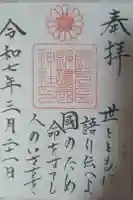 奉拝
世とともに
語り伝へよ
國のため
命をすてし
人のいさをを
令和七年三月二十一日